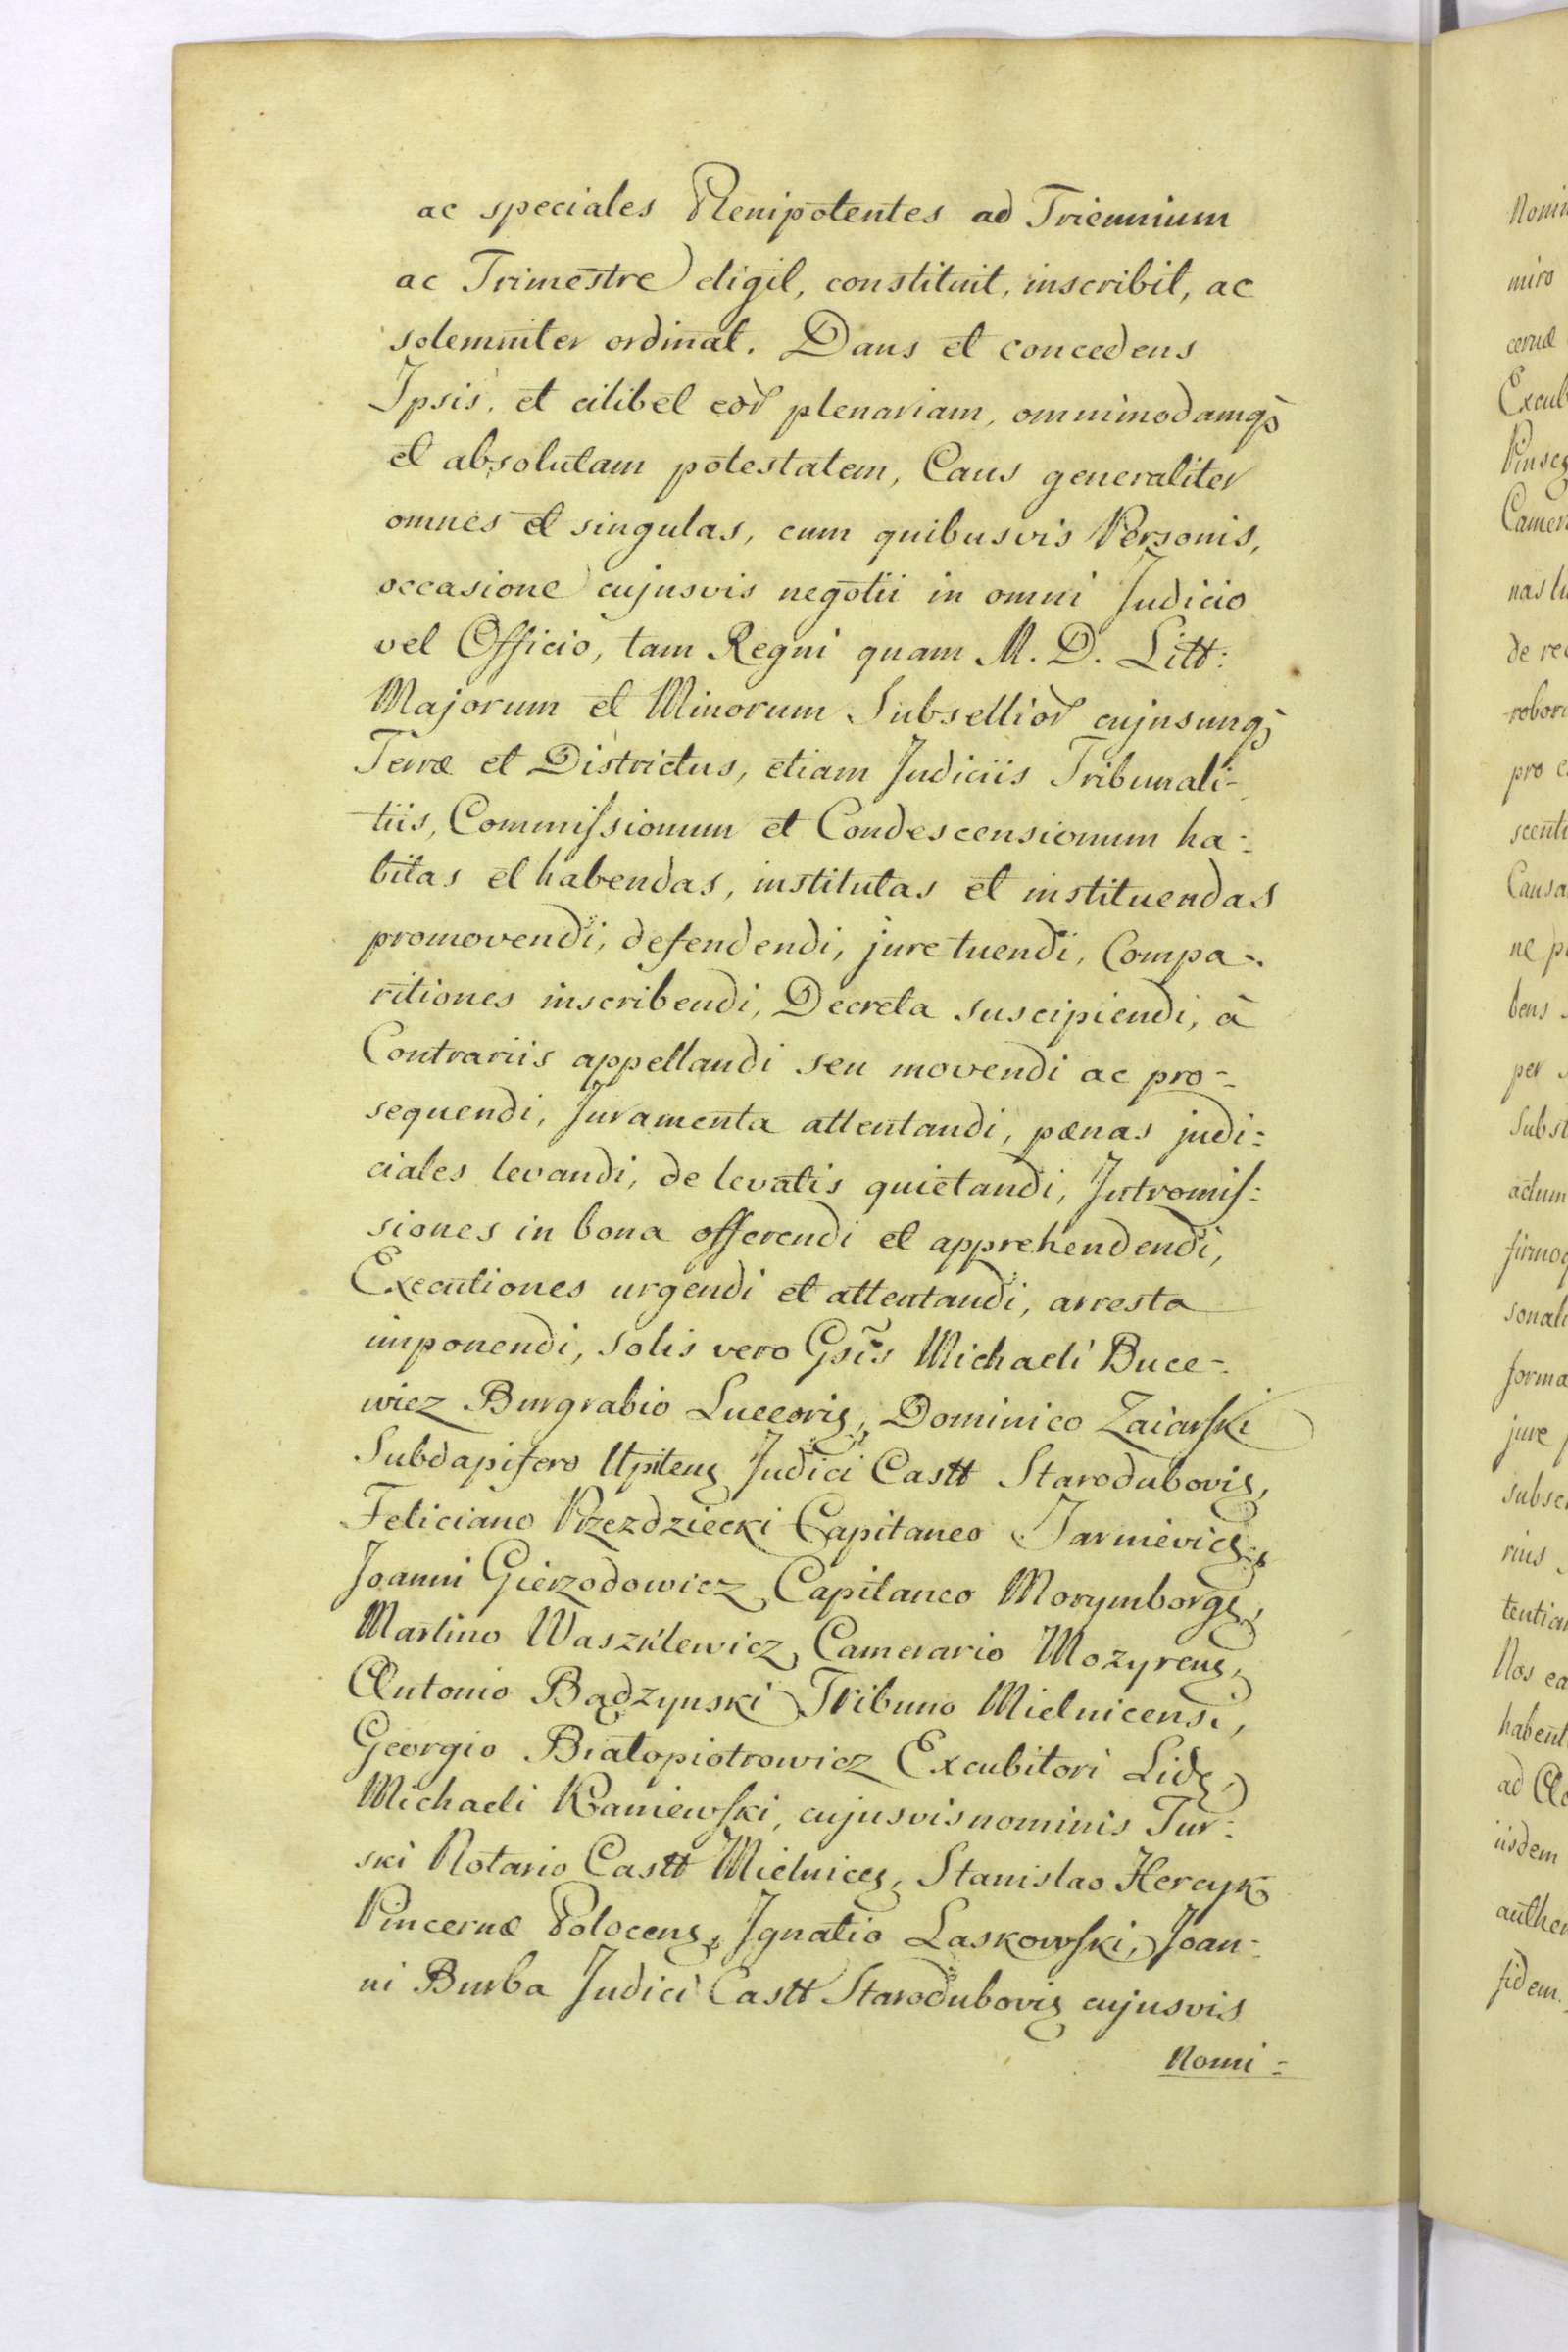 ac speciales Plenipotentes ad Triennium
ac Trimestre eligit, constituit, inscribit, ac
solemniter ordinat. Dans et concedens
Ipsis, et cilibet eor plenariam, omnimodamq;
et absolutam potestatem, Caus generaliter
omnes et singulas, cum quibusvis Personis,
occasione cujusvis negotii in omni Judicio
vel Officio, tam Regni quam M. D. Litt:
Majorum et Minorum Subsellior cujusunq;
Terræ et Districtus, etiam Judiciis Tribunali-
tiis, Commifsionum et Condescensionum ha-
bitas et habendas, institutas et instituendas
promovendi, defendendi, jure tuendi, Compa-
ritiones inscribendi, Decreta suscipiendi, à
Contrariis appellandi seu movendi ac pro-
sequendi, Juramenta attentandi, pænas judi:
ciales levandi, de levatis quietandi, Intromif:
siones in bona offerendi et apprehendendi,
Executiones urgendi et attentandi, arresta
imponendi, solis vero Gsis Michaeli Buce-
wicz Burgrabio Lucceoriς, Dominico Zaiarski
Subdapifero Upitenς Judici Castt Starodubovis,
Feliciano Przezdziecki Capitaneo Jarmievicς,
Joanni Gierzodowicz Capitaneo Morymborgς,
Martino Waszklewicz Camerario Mozyrenς,
Antonio Bądzynski Tribuno Mielnicensi,
Georgio Białopiotrowicz Excubitori Lidς,
Michaeli Kaniewski, cujusvis nominis Tur:
ski Notario Castt Mielniceς, Stanislao Hercyk
Pincernæ Polocenς, Ignatio Laskowski, Joan-
ni Burba Judici Castt Starodubovis cujusvis
Nomi: